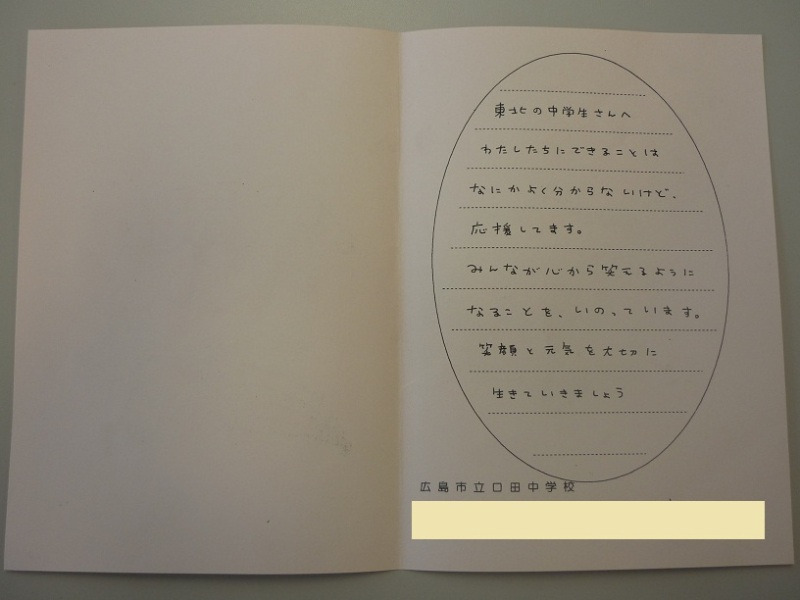 東北の中学生さんへ
わたしたちにできることは
なにかよく分からないけど、
応援してます。
みんなが心から笑えるように
なることを、いのっています。
笑顔と元気を大切に
生きていきましょう
広島市立口田中学校